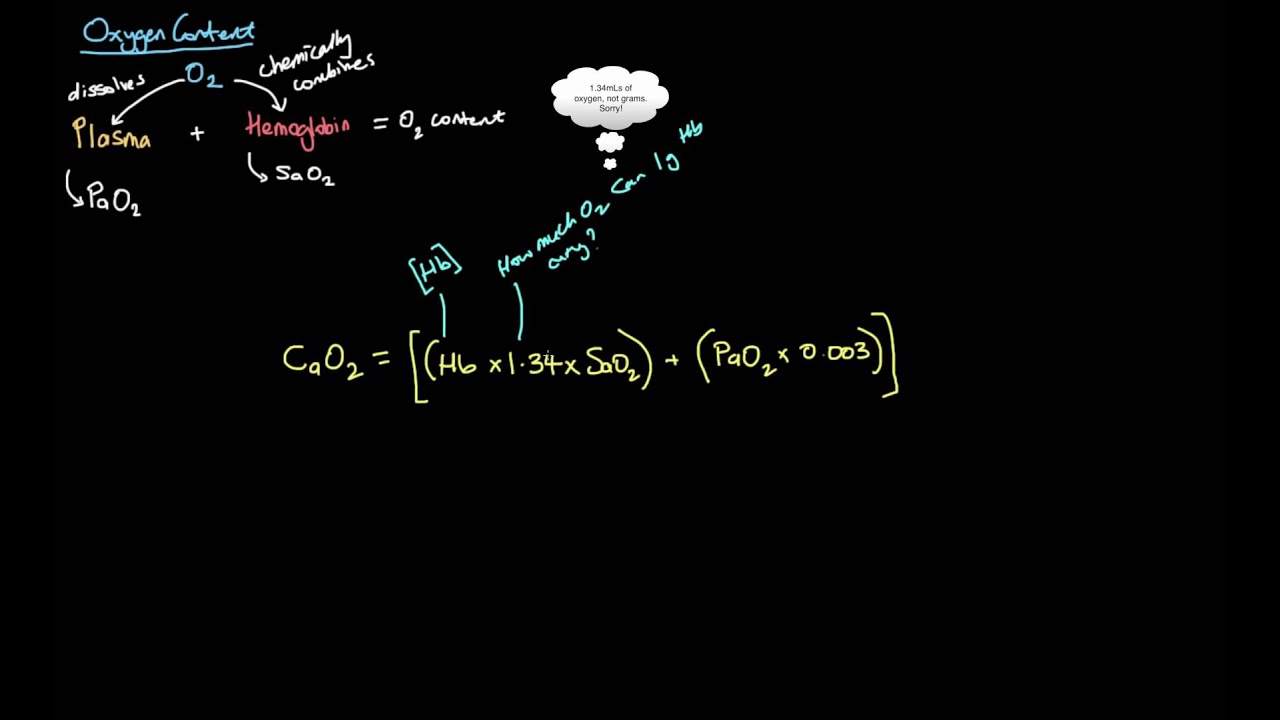 Oxygen Content
dissolves
O₂
chemically
combines
Plasma + Hemoglobin = O₂ content
PaO₂
SaO₂
1.34mLs of
oxygen, not grams.
Sorry!
[Hb]
How much O₂ can 1g Hb
carry?
CaO₂ = [(Hb x 1.34 x SaO₂) + (PaO₂ x 0.003)]